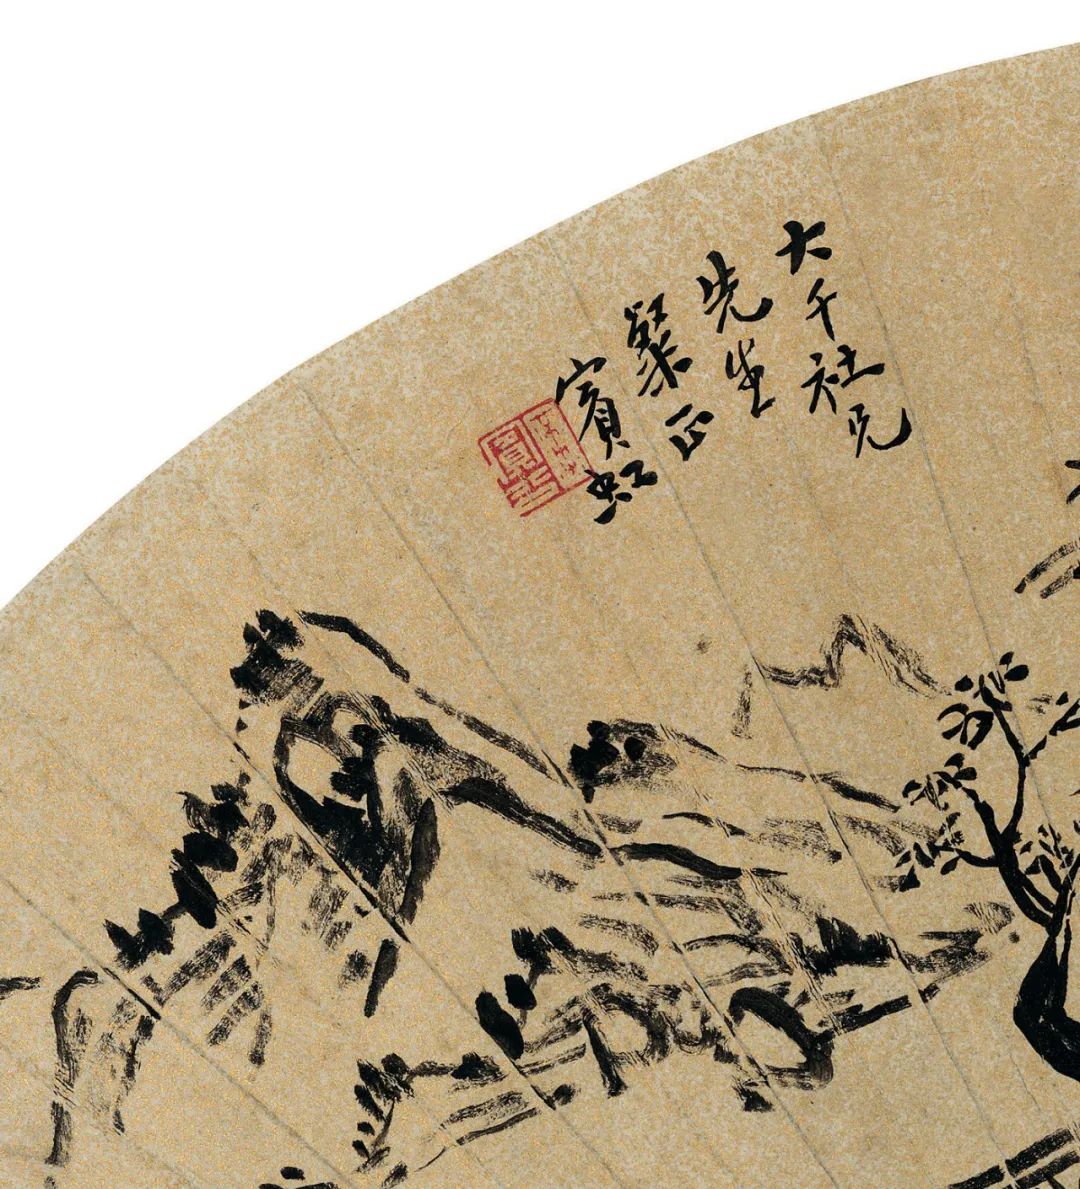 大千社兄
先生
粲正
賓虹